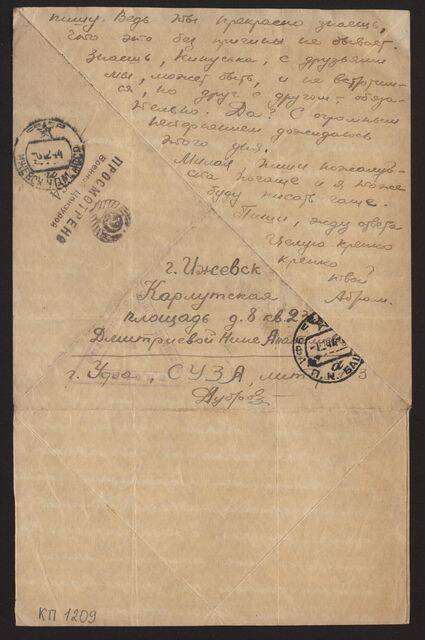 пишу. Ведь ты прекрасно знаешь,
что это без причины не бывает.
Знаешь, Нинуська, с друзьями
мы, может быть, и не встретим-
ся, но друг с другом – обяза-
тельно. Да? С огромным
нетерпением дожидаюсь
этого дня.
Милая, пиши пожалуй-
ста почаще и я тоже
буду писать чаще.
Пиши, жду ответа
Целую крепко
крепко
твой
Абрам.
ПРОСМОТРЕНО
Военной Цензурой
г. Ижевск
Карлутская
площадь д. 8 кв. 2
Дмитриевой Нине
г. Уфа, СУЗА, лит.
КП 1209